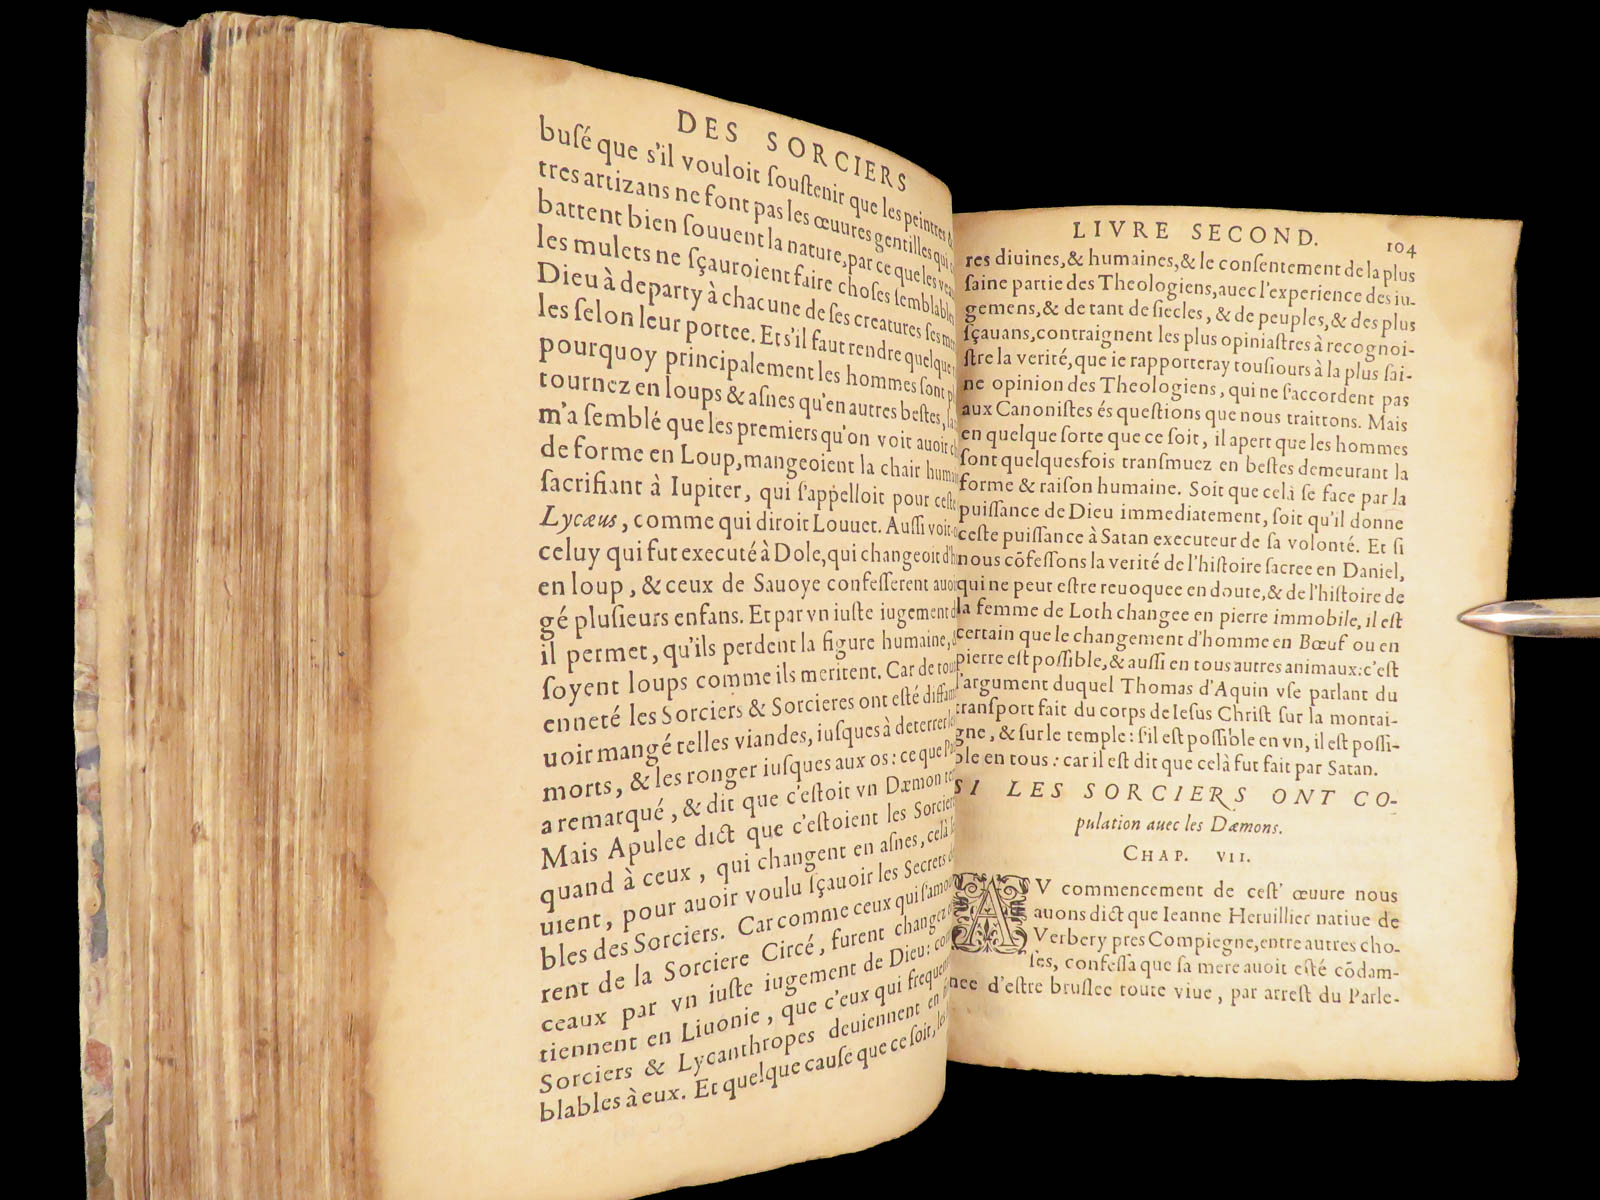 DES SORCIERS
busé que s'il vouloit soustenir que les peintres &
tres artizans ne font pas les œuures gentilles qui
battent bien souuent la nature, par ce que les
les mulets ne sçauroient faire choses semblables
Dieu à departy à chacune de ses creatures ses
les selon leur portee. Et s'il faut rendre quelque
pourquoy principalement les hommes sont
tournez en loups & asnes qu'en autres bestes,
m'a semblé que les premiers qu'on voit auoir
de forme en Loup, mangeoient la chair
sacrifiant à Iupiter, qui s'appelloit pour ceste
Lycæus, comme qui diroit Louuet. Aussi
celuy qui fut executé à Dole, qui changeoit
en loup, & ceux de Sauoye confesserent
gé plusieurs enfans. Et par vn iuste iugement
il permet, qu'ils perdent la figure humaine,
soyent loups comme ils meritent. Car de
enneté les Sorciers & Sorcieres ont esté
uoir mangé telles viandes, iusques à deterrer
morts, & les ronger iusques aux os: ce que
a remarqué, & dit que c'estoit vn Dæmon
Mais Apulee dict que c'estoient les
quand à ceux, qui changent en asnes, celà
uient, pour auoir voulu sçauoir les Secrets
bles des Sorciers. Car comme ceux qui
rent de la Sorciere Circé, furent changez
ceaux par vn iuste iugement de Dieu:
tiennent en Liuonie, que c'eux qui
Sorciers & Lycanthropes deuiennent en
blables à eux. Et quelque cause que ce soit,
LIVRE SECOND. 104
res diuines, & humaines, & le consentement de la plus
saine partie des Theologiens, auec l'experience des iu-
gemens, & de tant de siecles, & de peuples, & des plus
sçauans, contraignent les plus opiniastres à recognoi-
stre la verité, que ie rapporteray tousiours à la plus sai-
ne opinion des Theologiens, qui ne s'accordent pas
aux Canonistes és questions que nous traittons. Mais
en quelque sorte que ce soit, il apert que les hommes
sont quelquesfois transmuez en bestes demeurant la
forme & raison humaine. Soit que celà se face par la
puissance de Dieu immediatement, soit qu'il donne
ceste puissance à Satan executeur de sa volonté. Et si
nous cõfessons la verité de l'histoire sacree en Daniel,
qui ne peut estre reuoquee en doute, & de l'histoire de
la femme de Loth changee en pierre immobile, il est
certain que le changement d'homme en Bœuf ou en
pierre est possible, & aussi en tous autres animaux: c'est
l'argument duquel Thomas d'Aquin vse parlant du
transport fait du corps de Iesus Christ sur la montai-
gne, & sur le temple: s'il est possible en vn, il est possi-
ble en tous: car il est dit que celà fut fait par Satan.
SI LES SORCIERS ONT CO-
pulation auec les Dæmons.
CHAP. VII.
AV commencement de cest' œuure nous
auons dict que Ieanne Heruillier natiue de
Verbery pres Compiegne, entre autres cho-
ses, confessa que sa mere auoit esté cõdam-
nee d'estre bruslee toute viue, par arrest du Parle-